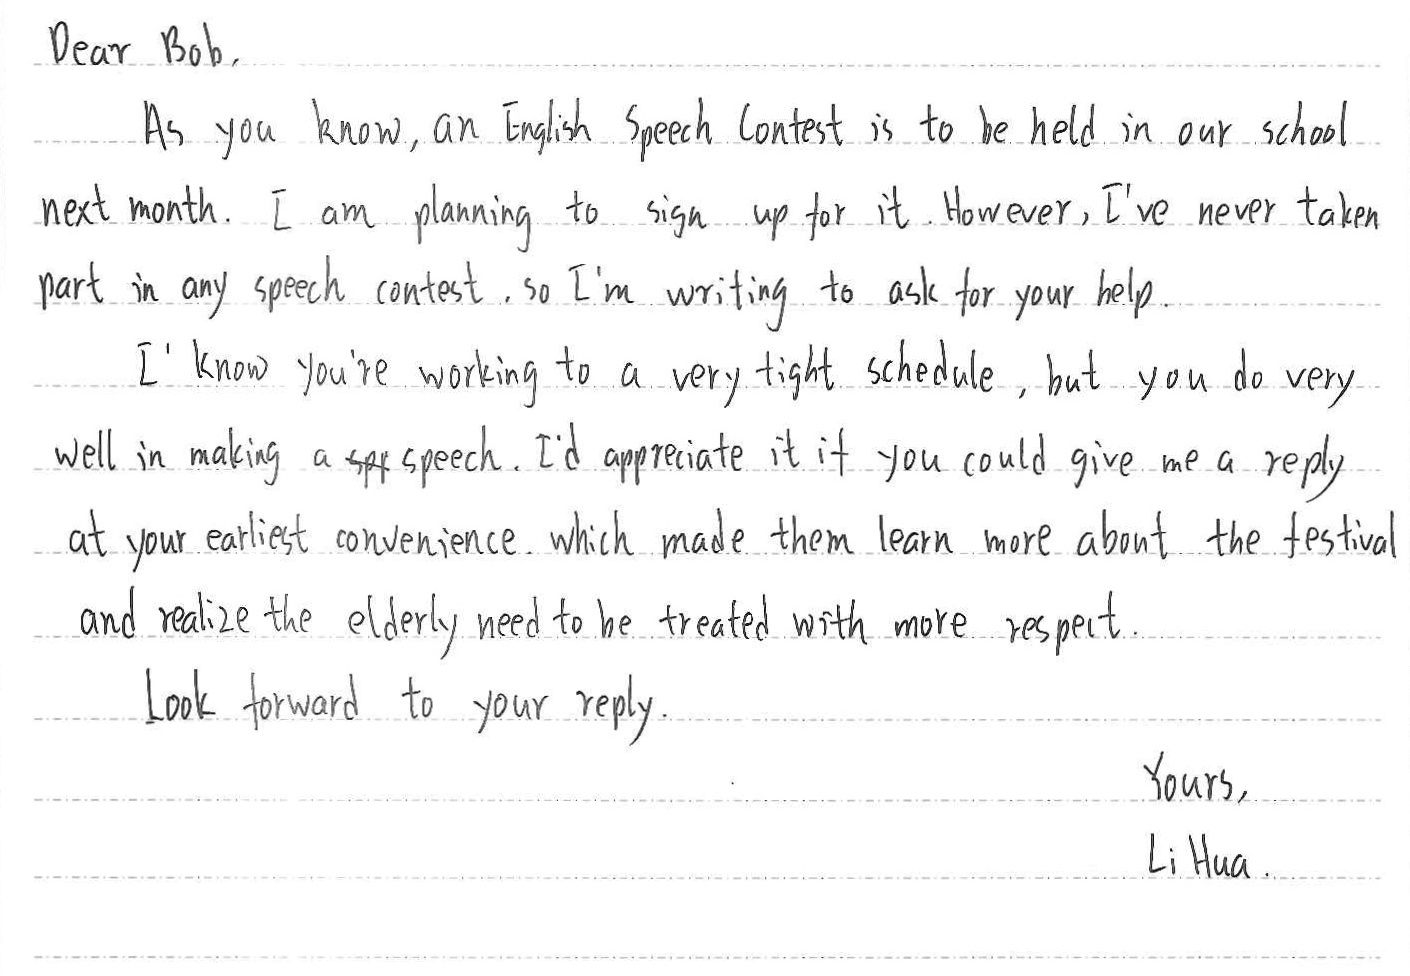 Dear Bob,
As you know, an English Speech Contest is to be held in our school
next month. I am planning to sign up for it. However, I've never taken
part in any speech contest, so I'm writing to ask for your help.
I' know you're working to a very tight schedule, but you do very
well in making a speech. I'd appreciate it if you could give me a reply
at your earliest convenience. which made them learn more about the festival
and realize the elderly need to be treated with more respect.
Look forward to your reply.
Yours,
Li Hua.